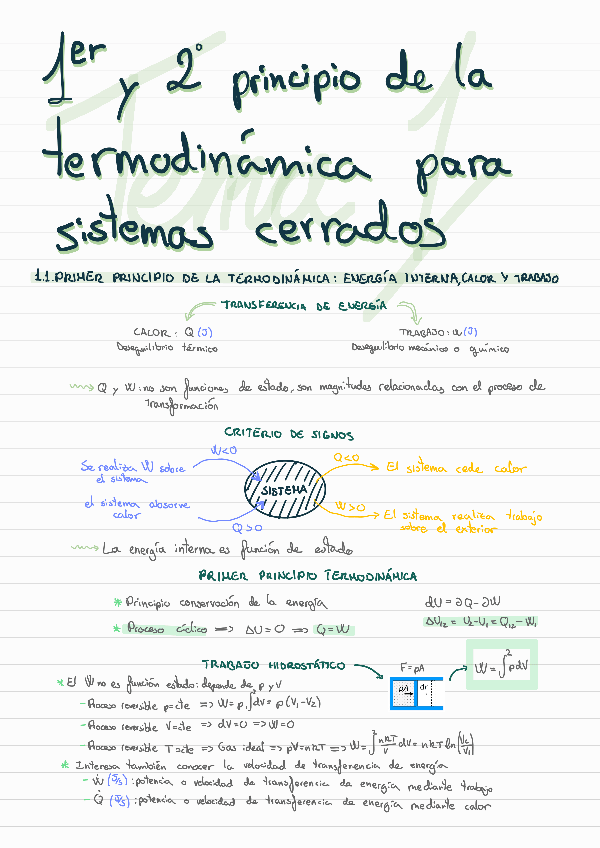 Tema 1
1er y 2º principio de la
termodinámica para
sistemas cerrados
1.1. PRIMER PRINCIPIO DE LA TERMODINÁMICA: ENERGÍA INTERNA, CALOR Y TRABAJO
TRANSFERENCIA DE ENERGÍA
CALOR: Q (J) TRABAJO: W (J)
Desequilibrio térmico Desequilibrio mecánico o químico
Q y W: no son funciones de estado, son magnitudes relacionadas con el proceso de
transformación
CRITERIO DE SIGNOS
W<0 Q<0
Se realiza W sobre El sistema cede calor
el sistema
SISTEMA
el sistema absorve W>0 El sistema realiza trabajo
calor sobre el exterior
Q>0
La energía interna es función de estado
PRIMER PRINCIPIO TERMODINÁMICA
* Principio conservación de la energía dU = ∂Q - ∂W
* Proceso cíclico => ΔU = 0 => Q = W ΔU₁₂ = U₂ - U₁ = Q₁₂ - W₁
TRABAJO HIDROSTÁTICO F = pA W = ∫² pdV
pA dr
* El W no es función estado: depende de p y V
- Proceso reversible p=cte => W = p ∫dV = p (V₁-V₂)
- Proceso reversible V=cte => dV = 0 => W = 0
- Proceso reversible T=cte => Gas ideal => pV = nRT => W = ∫² nRT/V dV = nRT ln(V₂/V₁)
* Interesa también conocer la velocidad de transferencia de energía
- Ẇ (J/s): potencia o velocidad de transferencia de energía mediante trabajo
- Q̇ (J/s): potencia o velocidad de transferencia de energía mediante calor